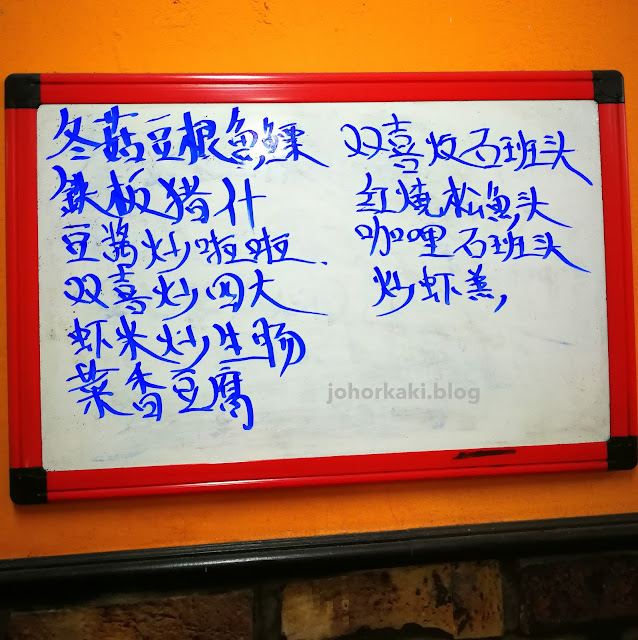 冬菇豆根魚鰾
鉄板猪什
豆酱炒啦啦
双喜炒四大
虾米炒生肠
菜香豆腐
双喜炆石班头
红燒松魚头
咖哩石班头
炒虾羔
johorkaki.blog